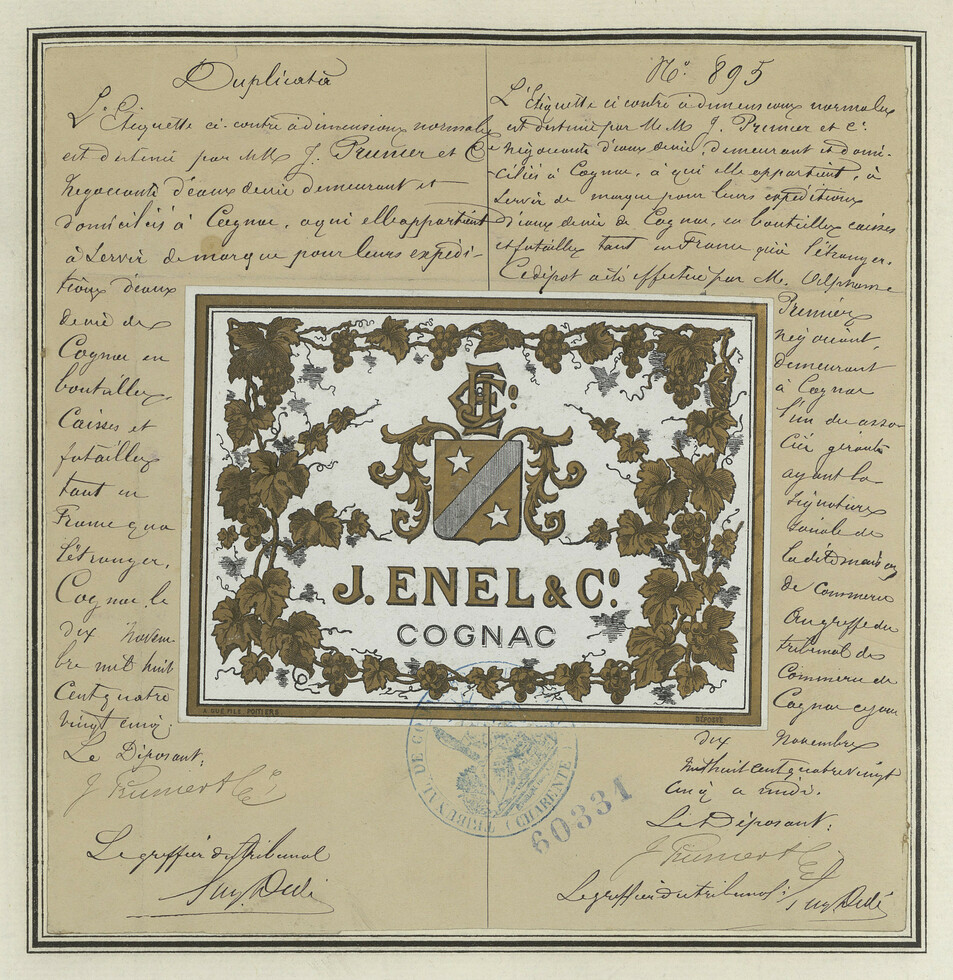 Duplicata
L'Etiquette ci-contre à dimensions normales
est destinée par MM J. Prunier et Cie
Négociants d'eaux de vie demeurant et
domiciliés à Cognac, a qui elle appartient
à servir de marque pour leurs expédi-
tions d'eaux
de vie de
Cognac en
bouteilles,
Caisses et
futailles
tant en
France qua
l'étranger.
Cognac, le
dix Novem-
bre mil huit
Cent quatre
vingt cinq.
Le Déposant:
J Prunier & Cie
Le greffier du tribunal
No. 895
L'Etiquette ci contre à dimensions normales
est destinée par M.M. J. Prunier et Cie
Négociants d'eaux de vie, demeurant et domi-
-ciliés à Cognac, à qui elle appartient, à
servir de marque pour leurs expéditions
d'eaux de vie de Cognac, en bouteilles caisses
et futailles tant en France qu'à l'étranger.
Ce dépot a été effectué par M. Alphonse
Prunier,
négociant,
demeurant
à Cognac
l'un des asso-
ciés gérants
ayant la
signature
sociale de
la dite maison
de Commerce
Au greffe du
tribunal de
Commerce de
Cognac ce jour
dix Novembre
mil huit cent quatre vingt
cinq a midi.
Le Déposant:
J Prunier & Cie
Le greffier du tribunal:
J. ENEL & Co.
COGNAC
A. GUÉ FILS, POITIERS
DÉPOSÉ
TRIBUNAL DE CO
(CHARENTE)
60331